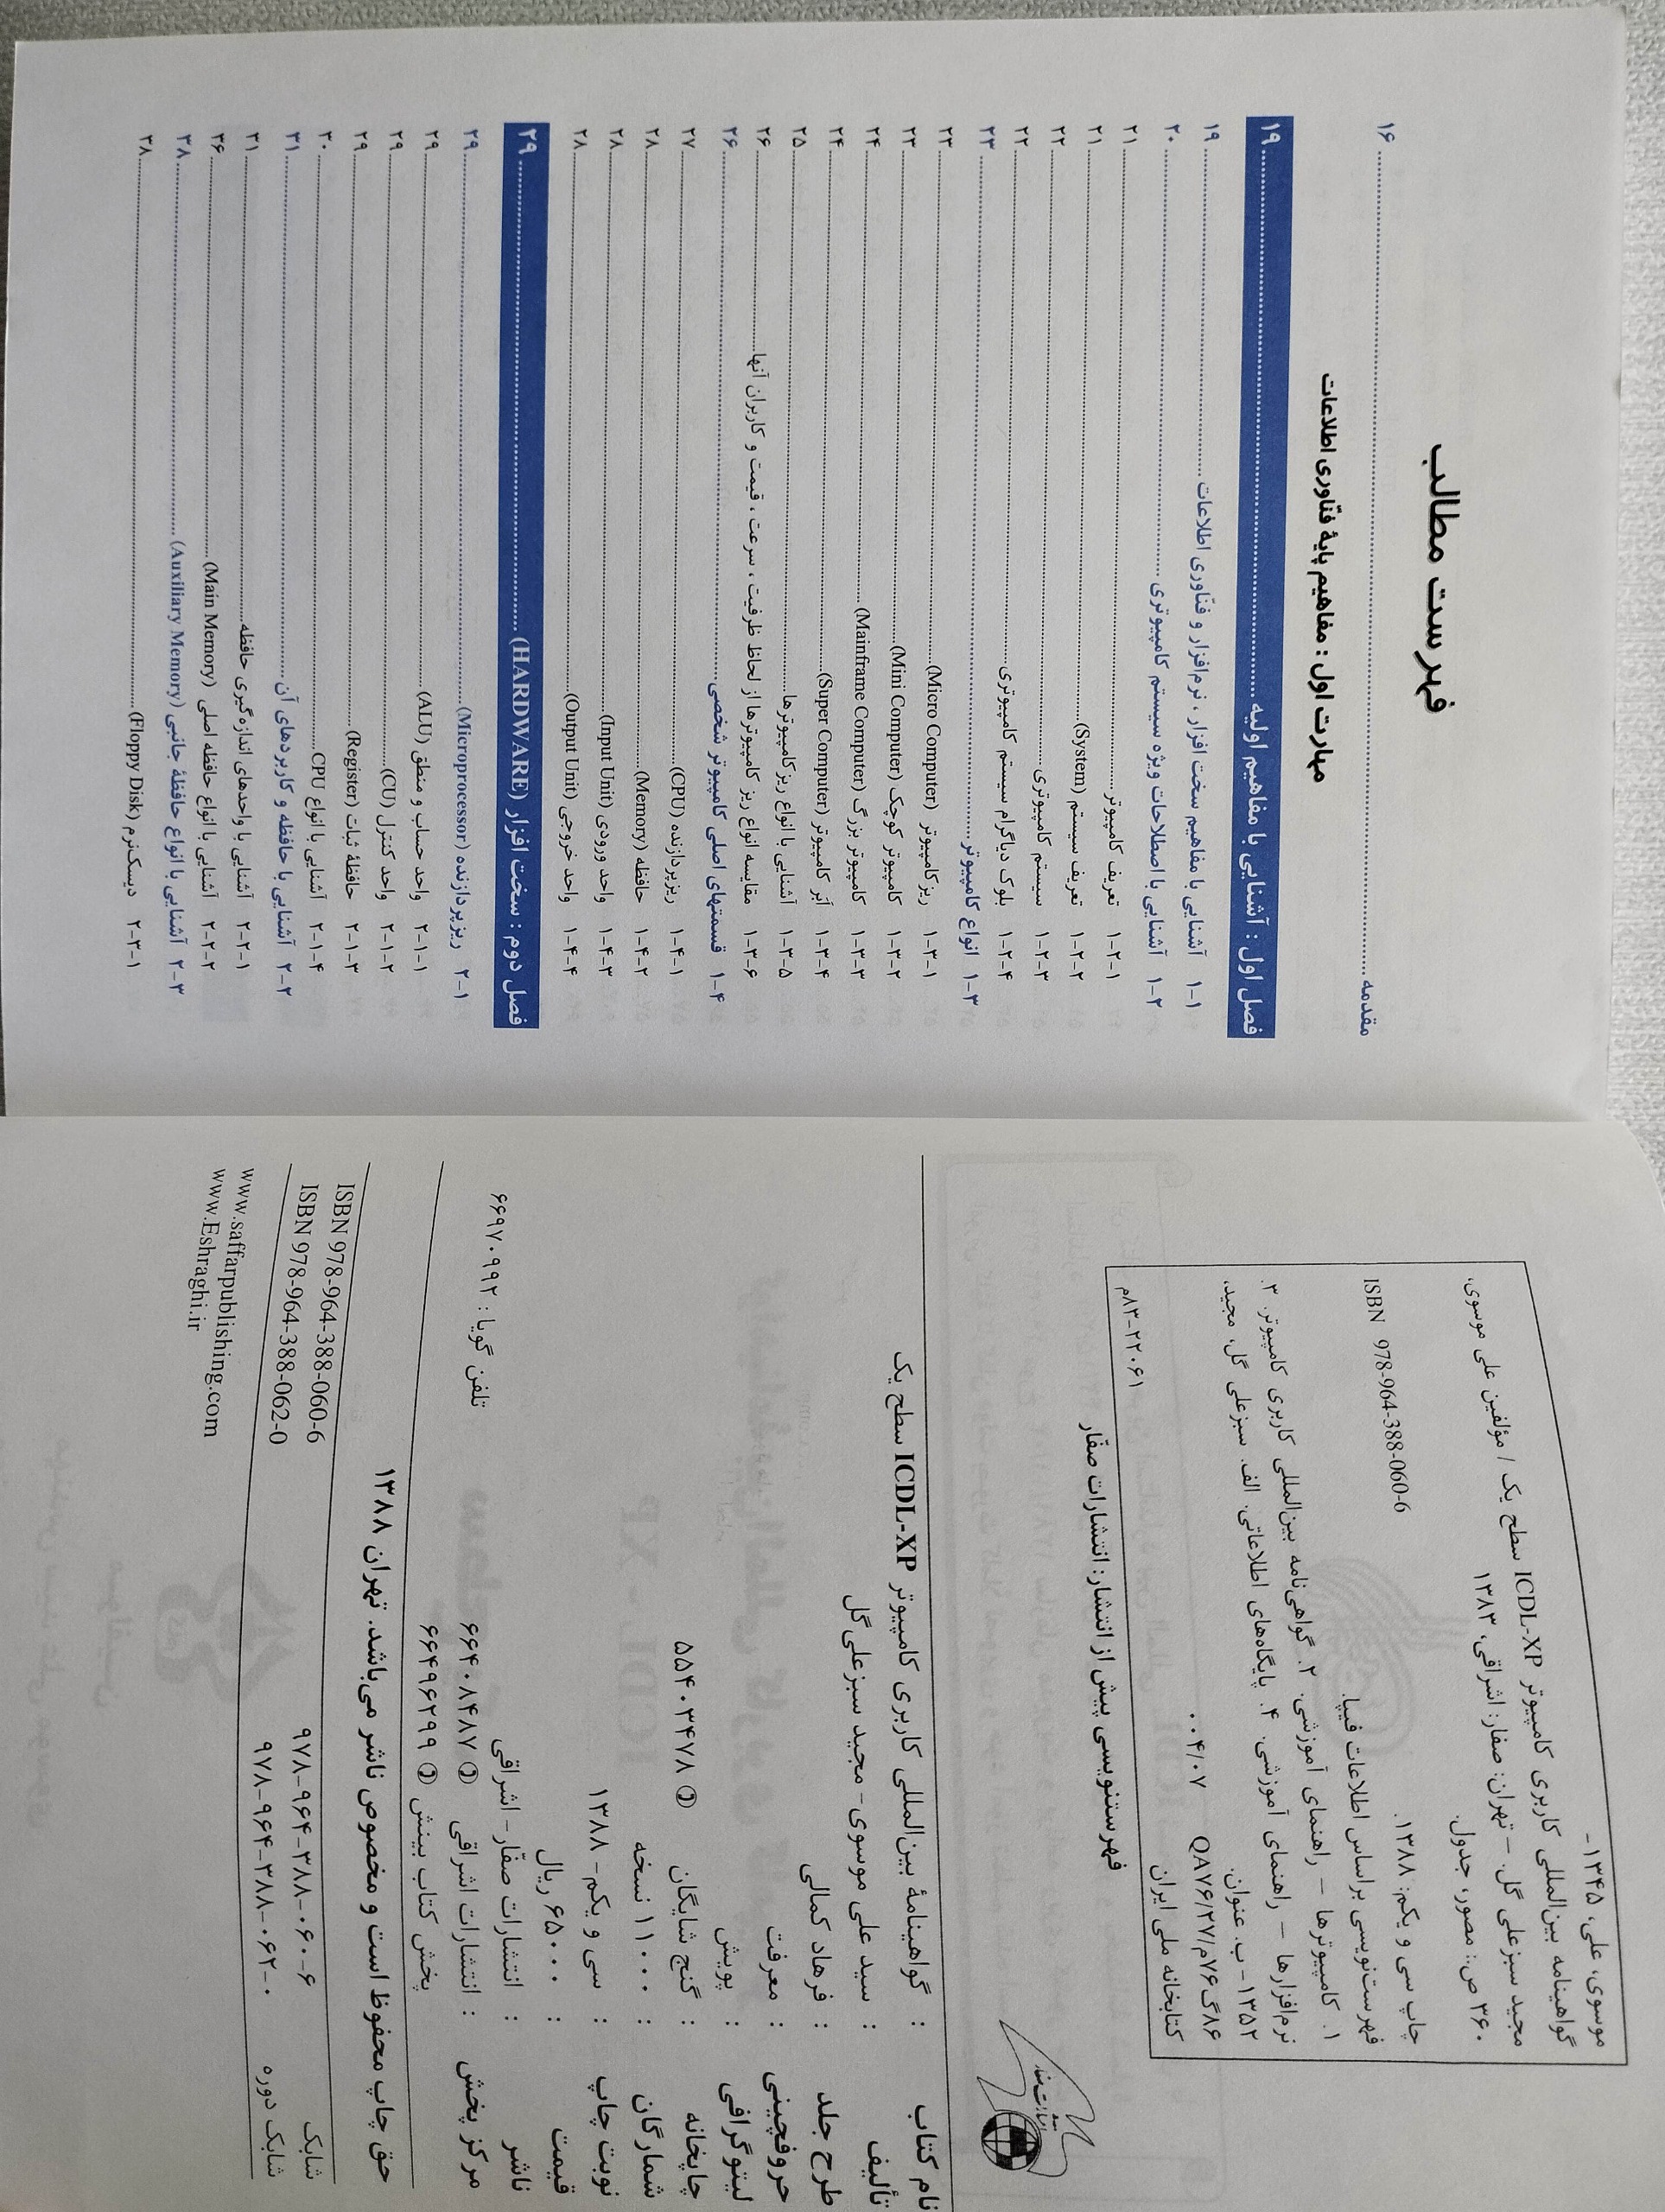 موسوی، علی، ۱۳۴۵-
گواهینامه بین‌المللی کاربری کامپیوتر ICDL-XP سطح یک / مؤلفین علی موسوی،
مجید سبزعلی گل. – تهران: صفار: اشراقی، ۱۳۸۳
۳۶۰ ص: مصور، جدول.
ISBN 978-964-388-060-6
چاپ سی و یکم: ۱۳۸۸.
فهرست‌نویسی براساس اطلاعات فیپا.
۱. کامپیوترها – راهنمای آموزشی. ۲. گواهی‌نامه بین‌المللی کاربری کامپیوتر. ۳.
نرم‌افزارها – راهنمای آموزشی. ۴. پایگاه‌های اطلاعاتی. الف. سبزعلی گل، مجید،
۱۳۵۲- ب. عنوان.
۸گ۷۶م/۲۷/QA۷۶ ۰۰۴/۰۷
کتابخانه ملی ایران ۸۳-۲۲۰۶۱م
فهرستنویسی پیش از انتشار: انتشارات صفّار
نام کتاب : گواهینامهٔ بین‌المللی کاربری کامپیوتر ICDL-XP سطح یک
تألیف : سید علی موسوی- مجید سبزعلی‌گل
طرح جلد : فرهاد کمالی
حروفچینی : معرفت
لیتوگرافی : پویش
چاپخانه : گنج شایگان ✆ ۵۵۴۰۳۴۷۸
شمارگان : ۱۱۰۰۰ نسخه
نوبت چاپ : سی و یکم- ۱۳۸۸
قیمت : ۶۵۰۰۰ ریال
ناشر : انتشارات صفّار- اشراقی
مرکز پخش : انتشارات اشراقی ✆ ۶۶۴۰۸۴۸۷ تلفن گویا : ۶۶۹۷۰۹۹۲
پخش کتاب بینش ✆ ۶۶۴۹۶۲۹۹
حق چاپ محفوظ است و مخصوص ناشر می‌باشد. تهران ۱۳۸۸
شابک ۹۷۸-۹۶۴-۳۸۸-۰۶۰-۶ ISBN 978-964-388-060-6
شابک دوره ۹۷۸-۹۶۴-۳۸۸-۰۶۲-۰ ISBN 978-964-388-062-0
www.saffarpublishing.com
www.Eshraghi.ir
فهرست مطالب
مقدمه ۱۶
مهارت اول : مفاهیم پایهٔ فنّاوری اطلاعات
فصل اول : آشنایی با مفاهیم اولیه ۱۹
۱-۱ آشنایی با مفاهیم سخت افزار ، نرم‌افزار و فنّاوری اطلاعات ۱۹
۱-۲ آشنایی با اصطلاحات ویژه سیستم کامپیوتری ۲۰
۱-۲-۱ تعریف کامپیوتر ۲۱
۱-۲-۲ تعریف سیستم (System) ۲۱
۱-۲-۳ سیستم کامپیوتری ۲۲
۱-۲-۴ بلوک دیاگرام سیستم کامپیوتری ۲۲
۱-۳ انواع کامپیوتر ۲۳
۱-۳-۱ ریز کامپیوتر (Micro Computer) ۲۳
۱-۳-۲ کامپیوتر کوچک (Mini Computer) ۲۳
۱-۳-۳ کامپیوتر بزرگ (Mainframe Computer) ۲۴
۱-۳-۴ اَبَر کامپیوتر (Super Computer) ۲۴
۱-۳-۵ آشنایی با انواع ریزکامپیوترها ۲۵
۱-۳-۶ مقایسه انواع ریز کامپیوترها از لحاظ ظرفیت ، سرعت ، قیمت و کاربران آنها ۲۶
۱-۴ قسمتهای اصلی کامپیوتر شخصی ۲۶
۱-۴-۱ ریزپردازنده (CPU) ۲۷
۱-۴-۲ حافظه (Memory) ۲۸
۱-۴-۳ واحد ورودی (Input Unit) ۲۸
۱-۴-۴ واحد خروجی (Output Unit) ۲۸
فصل دوم : سخت افزار (HARDWARE) ۲۹
۲-۱ ریزپردازنده (Microprocessor) ۲۹
۲-۱-۱ واحد حساب و منطق (ALU) ۲۹
۲-۱-۲ واحد کنترل (CU) ۲۹
۲-۱-۳ حافظهٔ ثبات (Register) ۲۹
۲-۱-۴ آشنایی با انواع CPU ۳۰
۲-۲ آشنایی با حافظه و کاربردهای آن ۳۱
۲-۲-۱ آشنایی با واحدهای اندازه‌گیری حافظه ۳۱
۲-۲-۲ آشنایی با انواع حافظه اصلی (Main Memory) ۳۶
۲-۳ آشنایی با انواع حافظهٔ جانبی (Auxiliary Memory) ۳۸
۲-۳-۱ دیسک‌نرم (Floppy Disk) ۳۸